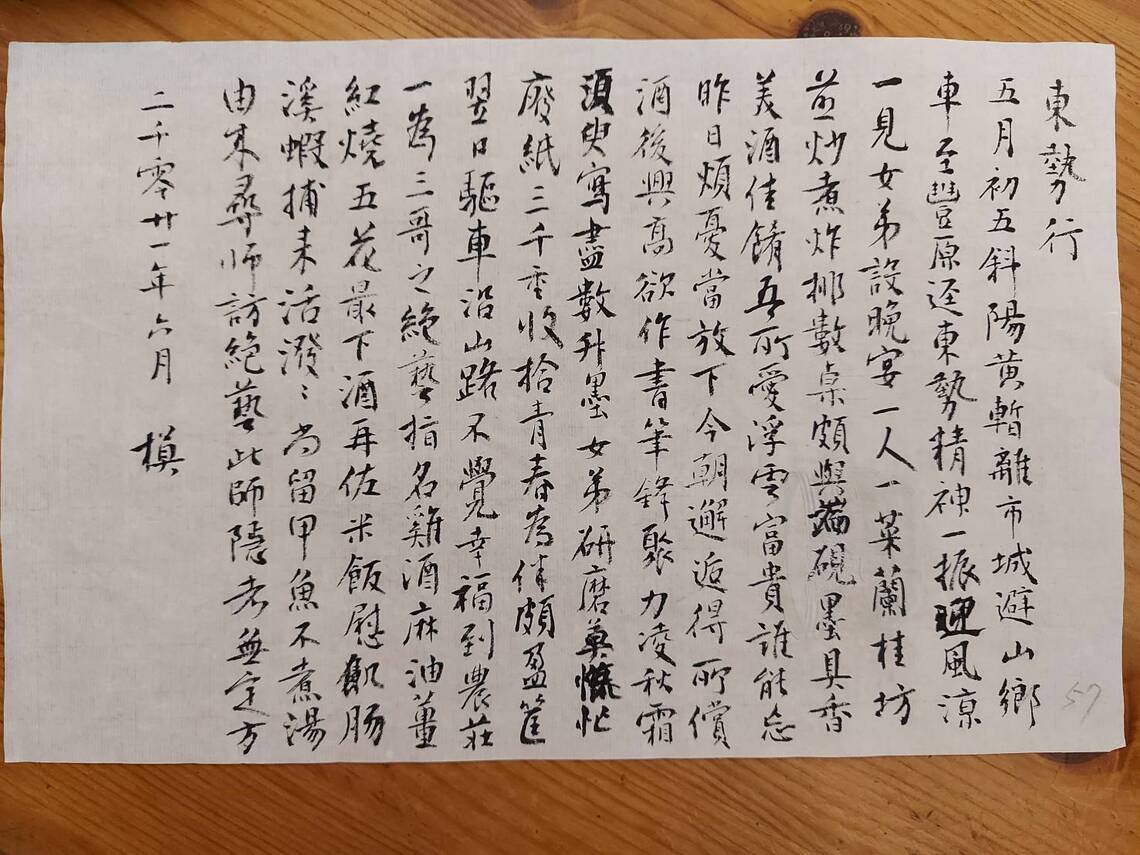 東勢行
五月初五斜陽黃暫離市城避山鄉
車至豐原逕東勢精神一振迎風涼
一見女弟設晚宴一人一菜蘭桂坊
煎炒煮炸排數桌頗與端硯墨具香
美酒佳餚吾所愛浮雲富貴誰能忘
昨日煩憂當放下今朝邂逅得所償
酒後興高欲作書筆鋒聚力凌秋霜
須臾寫盡數升墨女弟研磨莫慌忙
廢紙三千重收拾青春為伴頗盈筐
翌日驅車沿山路不覺幸福到農莊
一為三哥之絕藝指名雞酒麻油薑
紅燒五花最下酒再佐米飯慰飢腸
溪蝦捕來活潑〻尚留甲魚不煮湯
由來尋師訪絕藝此師隱者無定方
二千零廿一年六月 槙
57